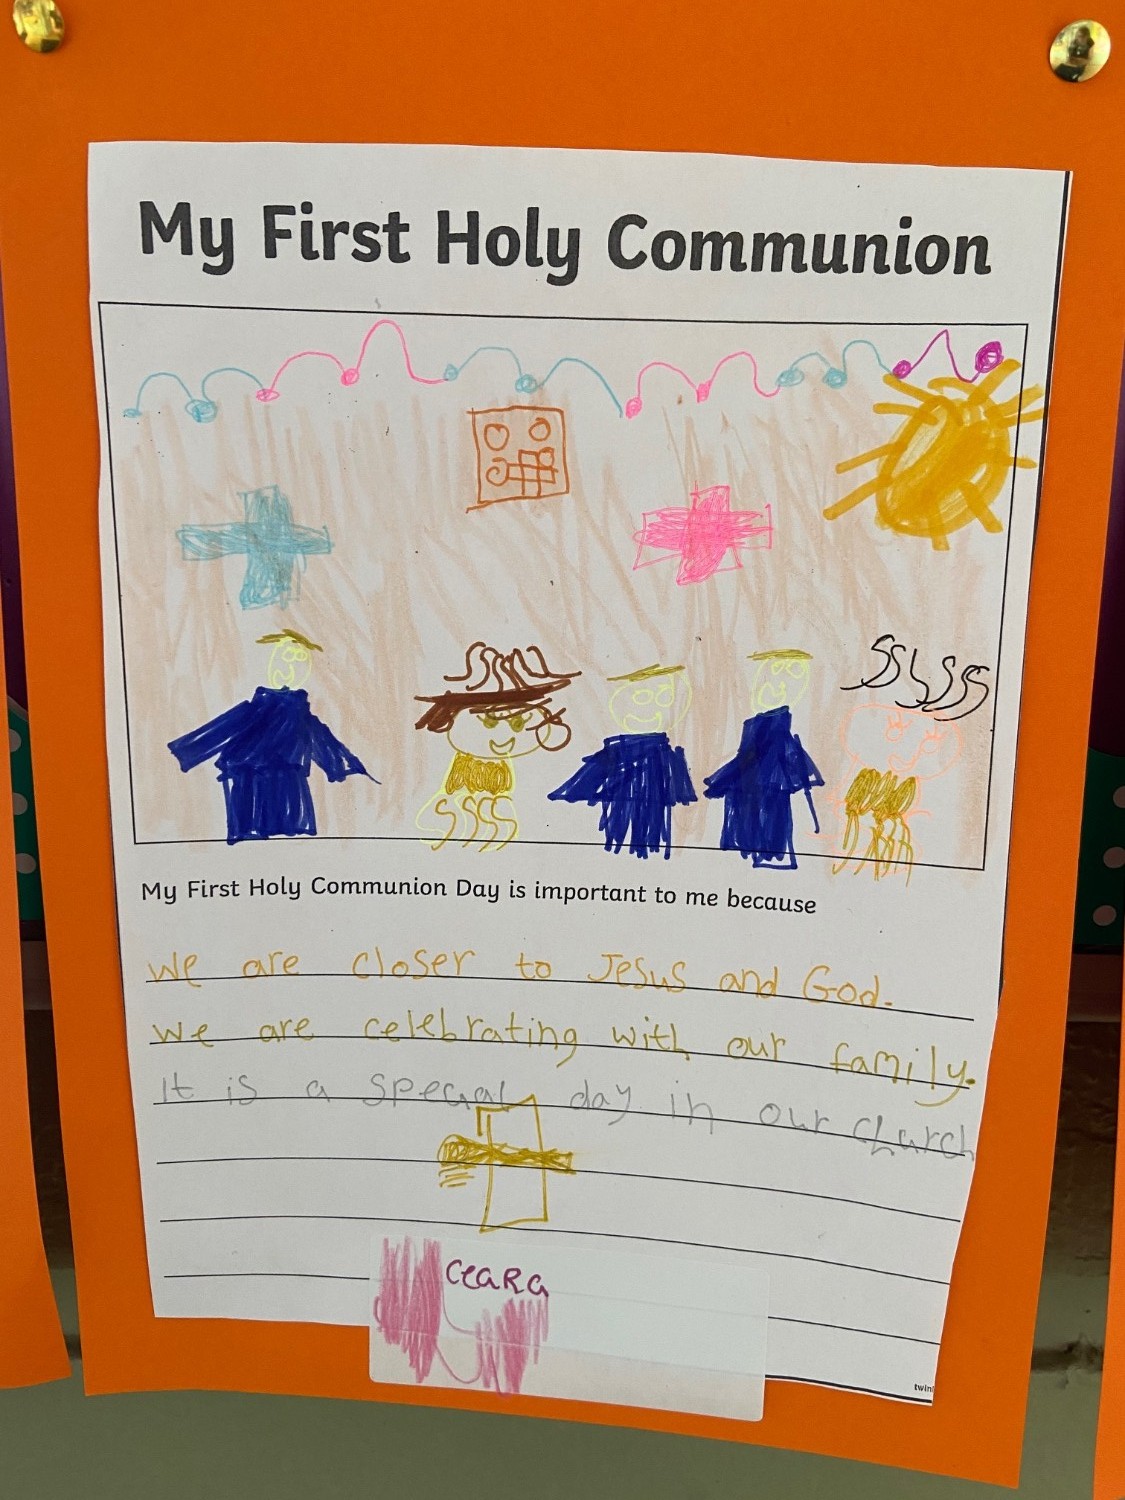 My First Holy Communion
My First Holy Communion Day is important to me because
we are closer to Jesus and God.
we are celebrating with our family.
It is a special day in our church
CeaRa
twin